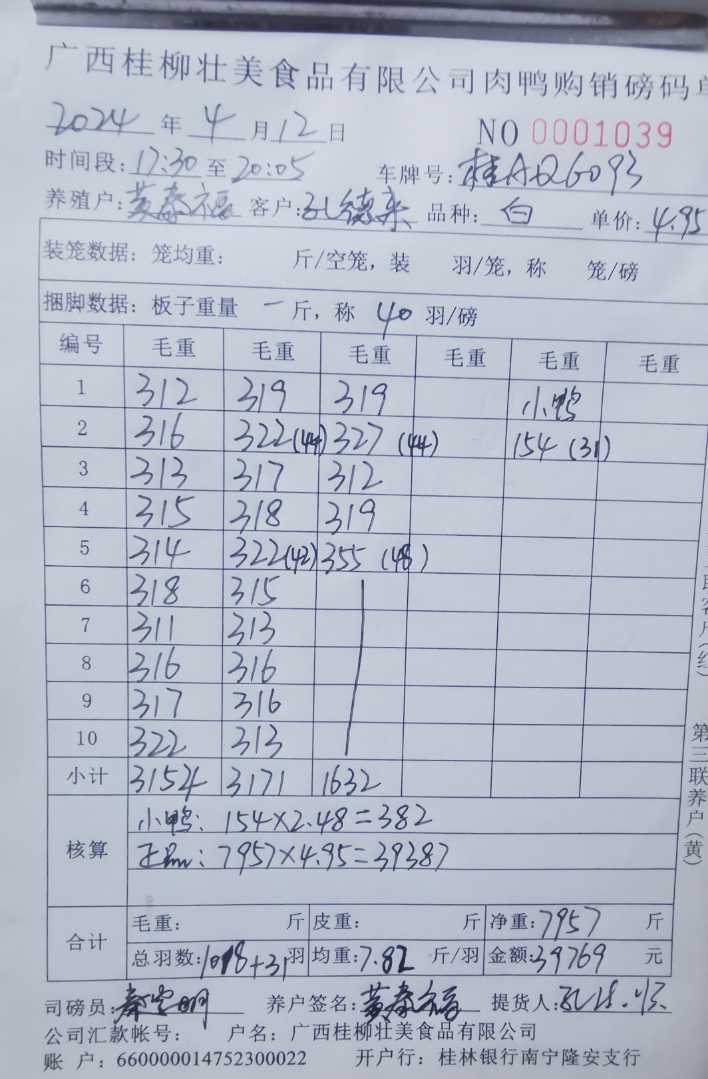 广西桂柳壮美食品有限公司肉鸭购销磅码单
2024 年 4 月 12 日 NO 0001039
时间段: 17:30 至 20:05 车牌号: 桂AQ6093
养殖户: 黄春福 客户: 孔德来 品种: 白 单价: 4.95
装笼数据: 笼均重: 斤/空笼, 装 羽/笼, 称 笼/磅
捆脚数据: 板子重量 一 斤, 称 40 羽/磅
编号 毛重 毛重 毛重 毛重 毛重 毛重
1 312 319 319 小鸭
2 316 322(44) 327 (44) 154 (31)
3 313 317 312
4 315 318 319
5 314 322(42) 355 (48)
6 318 315
7 311 313
8 316 316
9 317 316
10 322 313
小计 3154 3171 1632
核算
小鸭: 154×2.48=382
正品: 7957×4.95=39387
合计
毛重: 斤 皮重: 斤 净重: 7957 斤
总羽数: 1018+31 羽 均重: 7.82 斤/羽 金额: 39769 元
司磅员: 养户签名: 黄春福 提货人:
公司汇款帐号: 户名: 广西桂柳壮美食品有限公司
账 户: 660000014752300022 开户行: 桂林银行南宁隆安支行
客户(红)
第三联养户(黄)